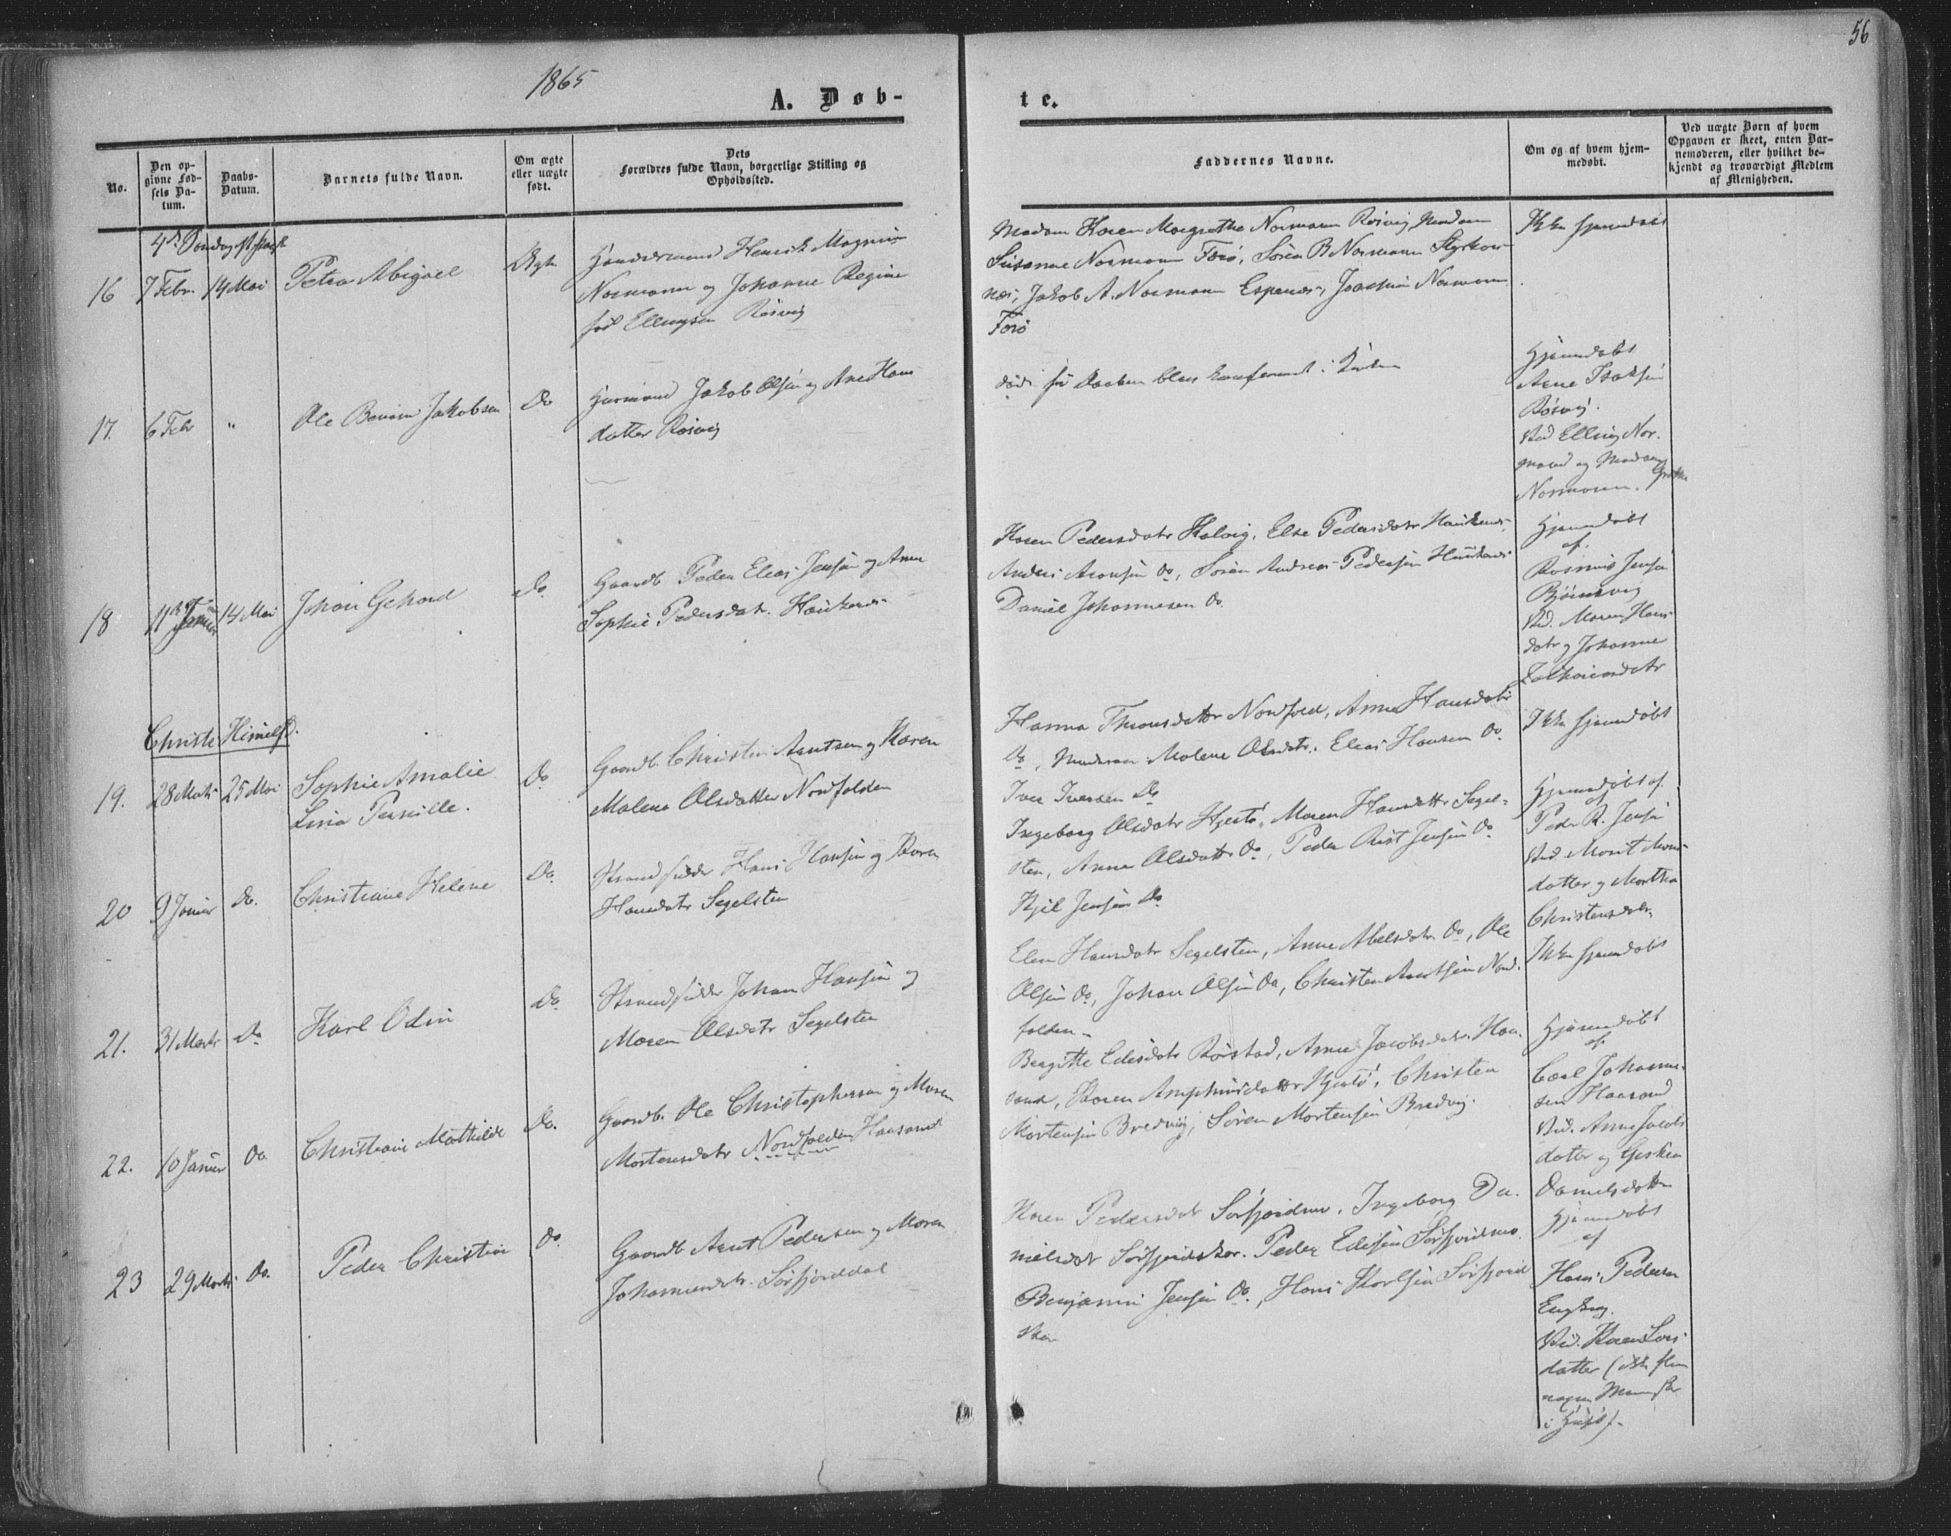 56
1865
A. Døb-
te.
No.
Den op-
givne Fød-
sels Da-
tum.
Daabs-
Datum.
Barnets fulde Navn.
Om ægte
eller uægte
født.
Dets
Forældres fulde Navn, borgerlige Stilling og
Opholdssted.
Faddernes Navne.
Om og af hvem hjem-
medøbt.
Ved uægte Børn af hvem
Opgaven er skeet, enten Bar-
nemoderen, eller hvilket be-
kjendt og troværdigt Medlem
af Menigheden.
4de Søndag
16 7 Febr 14 Mai Petra Abigael
Ægte
Henrik Magnus
Normann og Johanne Regine
født Ellingsen Røsvig
Madam Karen Margrethe Normann Røsvig, Madam
Susanne Normann Forø, Søren B Normann Styrkes-
næs, Jakob A. Normann Espenæs, Joachim Normann
Forø
Ikke hjemmedøbt
17. 6 Febr " Ole Jakobsen
Do
Huusmand Jakob Olsen og Ane Hans
datter Røsvig
død før Daaben blev konfermeret i Kirken
Hjemmedøbt
Arne Isaksen
Røsvig.
Ved Elling Nor-
mand og Madam
Normann.
18 11 Januar 14 Mai Johan Gehard
Do.
Gaardb. Peder Elias Jensen og Anne
Sophie Pedersdatr. Haukenes
Karen Pedersdatr Kalvig, Else Pedersdatr Haukenes
Anders Aronsen Do, Søren Andreas Pedersen Haukenes
Daniel Johannesen Do.
Hjemmedøbt
af
Rasmus Jensen
Ved. Maren Hans-
datr og Johanne
Zakkariasdatr
Christi Himmelf. D.
19. 28 Marts 25 Mai Sophie Amalie
Lina Pernille.
Do
Gaardb. Christen Arntsen og Karen
Malena Olsdatter Nordfolden
Hanna Thomsdatter Nordfold, Anne Hansdatr
Do, Malene Olsdatr. Elias Hansen Do
Iver Iversen Do
Ikke hjemmedøbt
20 9 Januar Do. Christiane Helene
Do.
Strandsidder Hans Hansen og Karen
Hansdatr Segelsten
Ingeborg Olsdatr Hjertø, Maren Hansdatter Segel-
sten, Anne Olsdatter Do, Peder Rist Jensen Do
Kjel Jensen Do
Hjemmedøbt af
Peder R. Jensen
Ved. Marit Mons-
datter og Martha
Christensdatr
21. 31 Marts Do Karl Odin
Do.
Strandsidder Johan Hansen og
Maren Olsdatr Segelsten
Elen Hansdatr Segelsten, Anne Abelsdatr. Do, Ole
Olsen Do, Johan Olsen Do, Christen Arntsen Nord-
folden
Ikke hjemmedøbt
22. 10 Januar Do Christiane Mathilde
Do.
Gaardb. Ole Christophersen og Maren
Mortensdatr Nordfolden Haasand
Bergitte Edisdatr Røistad, Anne Jacobsdatr. Haa-
sand, Karen Amphinsdatter Hjertø, Christen
Mortensen Bredvig, Søren Mortensen Bredvig.
Hjemmedøbt
af
Carl Johannes-
sen Haasand
Ved. Anne Jacobs
datter og Gjertrud
Danielsdatter
23 29 Marts Do. Peder Christian
Do
Gaardb Arnt Pedersen og Maren
Johannesdatr. Sørfjorddal
Karen Pedersdatr Sørfjordmo, Ingeborg Da-
nielsdatr Sørfjordskar. Peder Edisen Sørfjordmo
Benjamin Jensen Do, Hans Karlsen Sørfjord
skar
Hjemmedøbt
af
Hans Pedersen
Ved. Karen Lars
datter (ikke flere
i Huset)